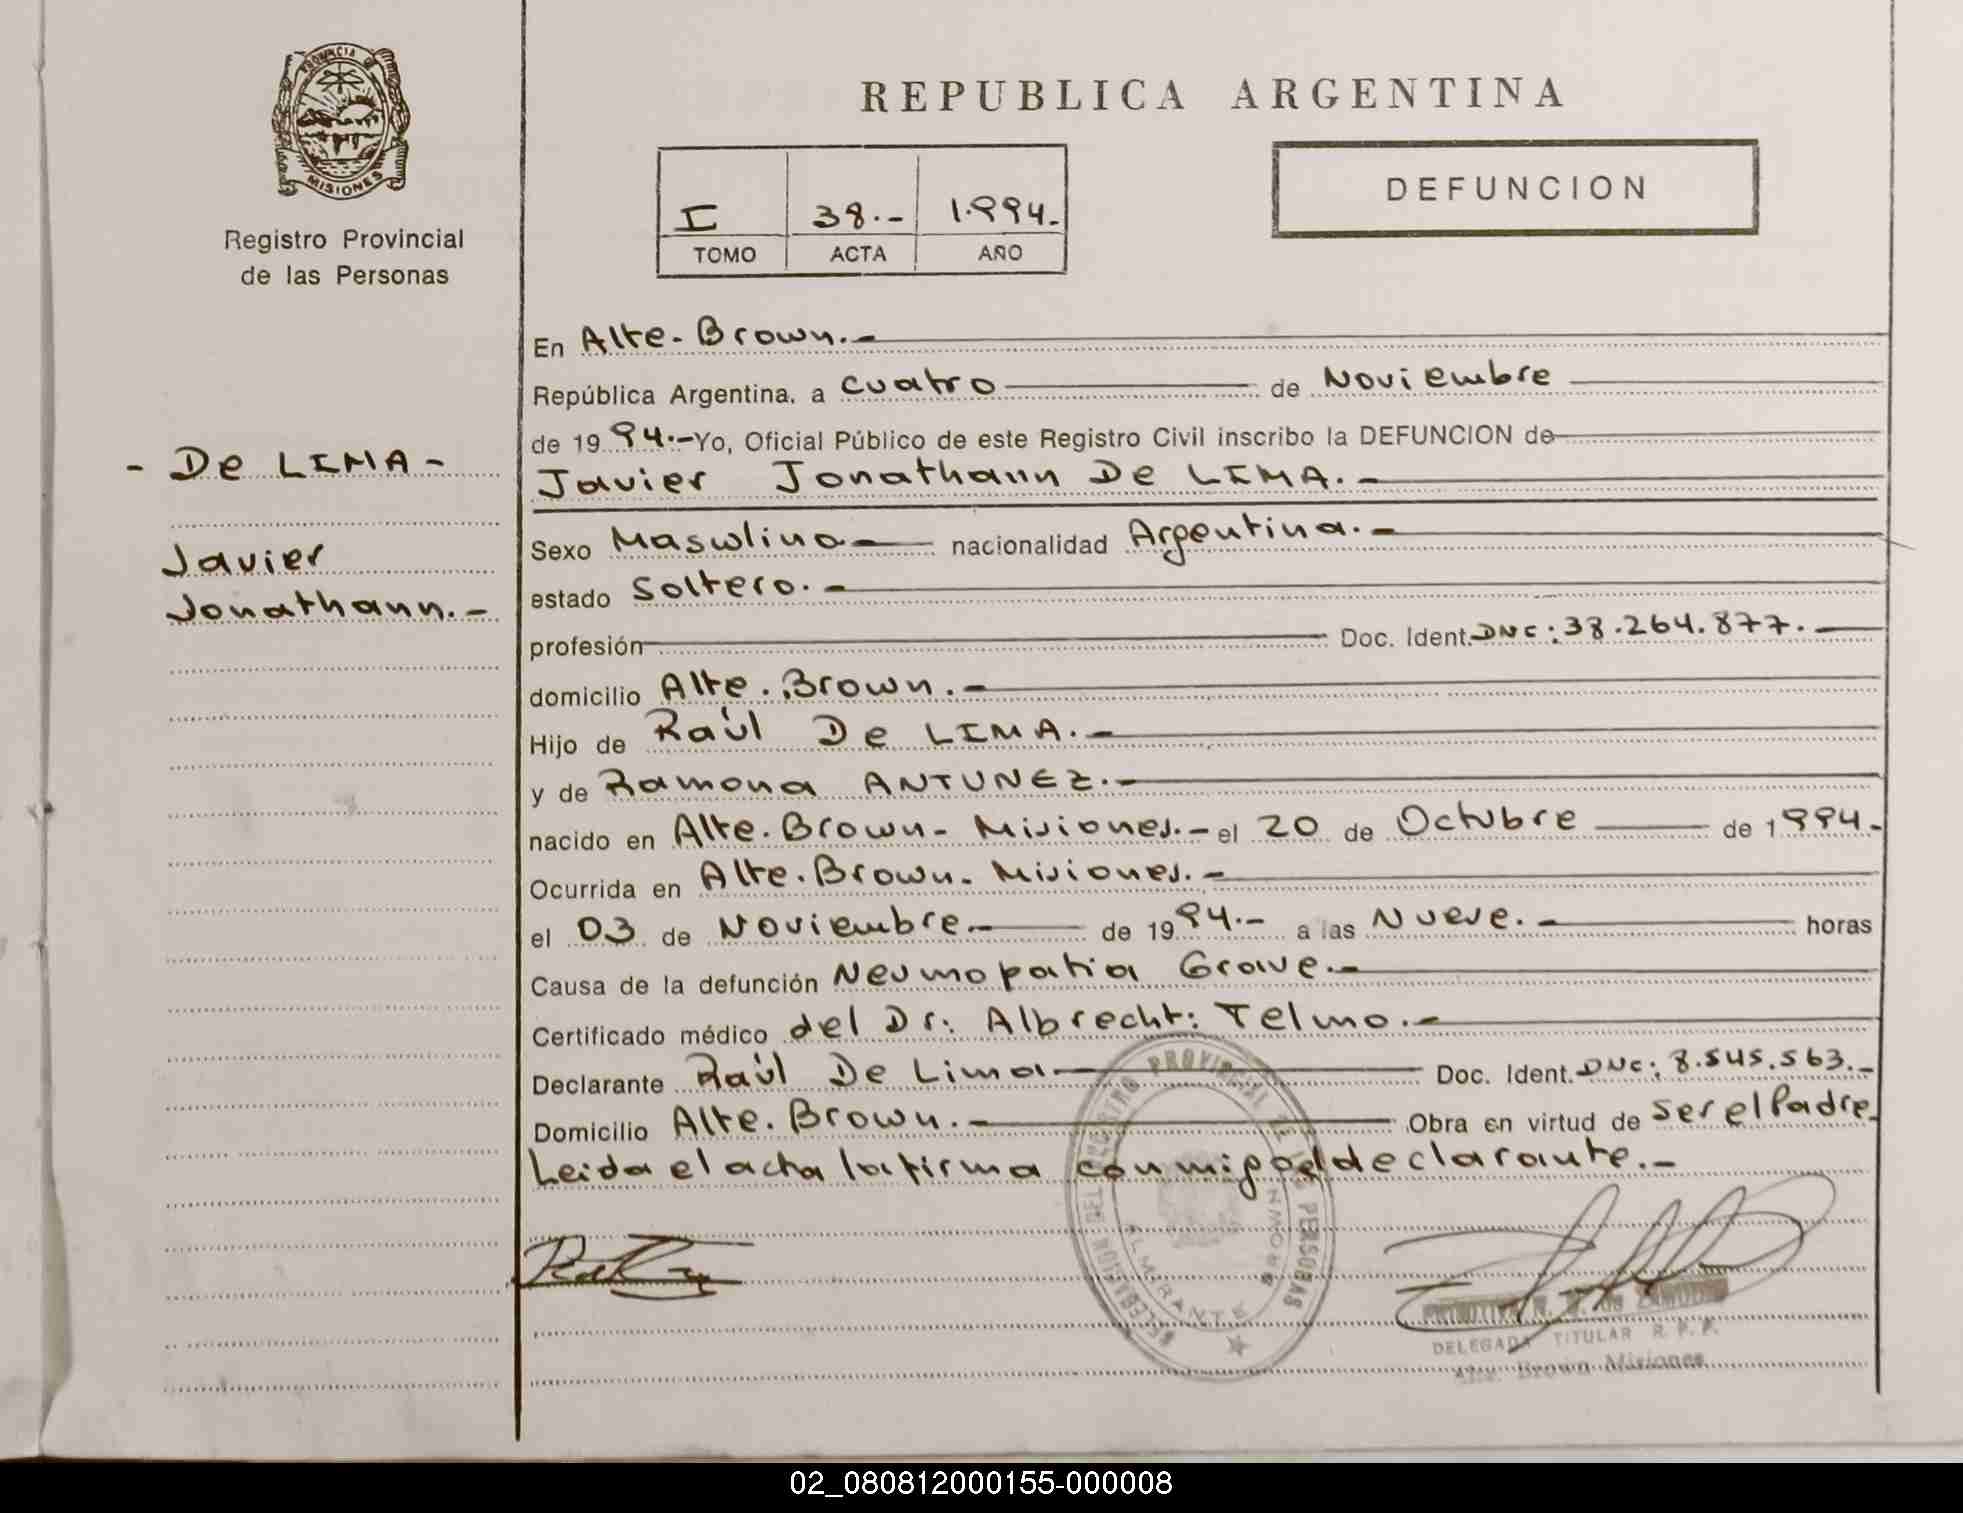 PROVINCIA DE
MISIONES
Registro Provincial
de las Personas
REPUBLICA ARGENTINA
I 38.- 1.994.-
TOMO ACTA AÑO
DEFUNCION
- De LIMA -
Javier
Jonathann.-
En Alte. Brown.-
República Argentina, a cuatro de Noviembre
de 1994.- Yo, Oficial Público de este Registro Civil inscribo la DEFUNCION de
Javier Jonathann De LIMA.-
Sexo Masculino nacionalidad Argentina.-
estado Soltero.-
profesión Doc. Ident. DNC: 38.264.877.-
domicilio Alte. Brown.-
Hijo de Raúl De LIMA.-
y de Ramona ANTUNEZ.-
nacido en Alte. Brown - Misiones.- el 20 de Octubre de 1994.-
Ocurrida en Alte. Brown - Misiones.-
el 03 de Noviembre.- de 1994.- a las Nueve.- horas
Causa de la defunción Neumopatia Grave.-
Certificado médico del Dr: Albrecht: Telmo.-
Declarante Raúl De Lima Doc. Ident. DNC: 8.545.563.-
Domicilio Alte. Brown.- Obra en virtud de ser el Padre.
Leida el acta la firma conmigo el declarante.-
DELEGACION DEL REGISTRO PROVINCIAL DE LAS PERSONAS
ALMIRANTE BROWN
DELEGADA TITULAR R. P. P.
Alte. Brown Misiones
02_080812000155-000008